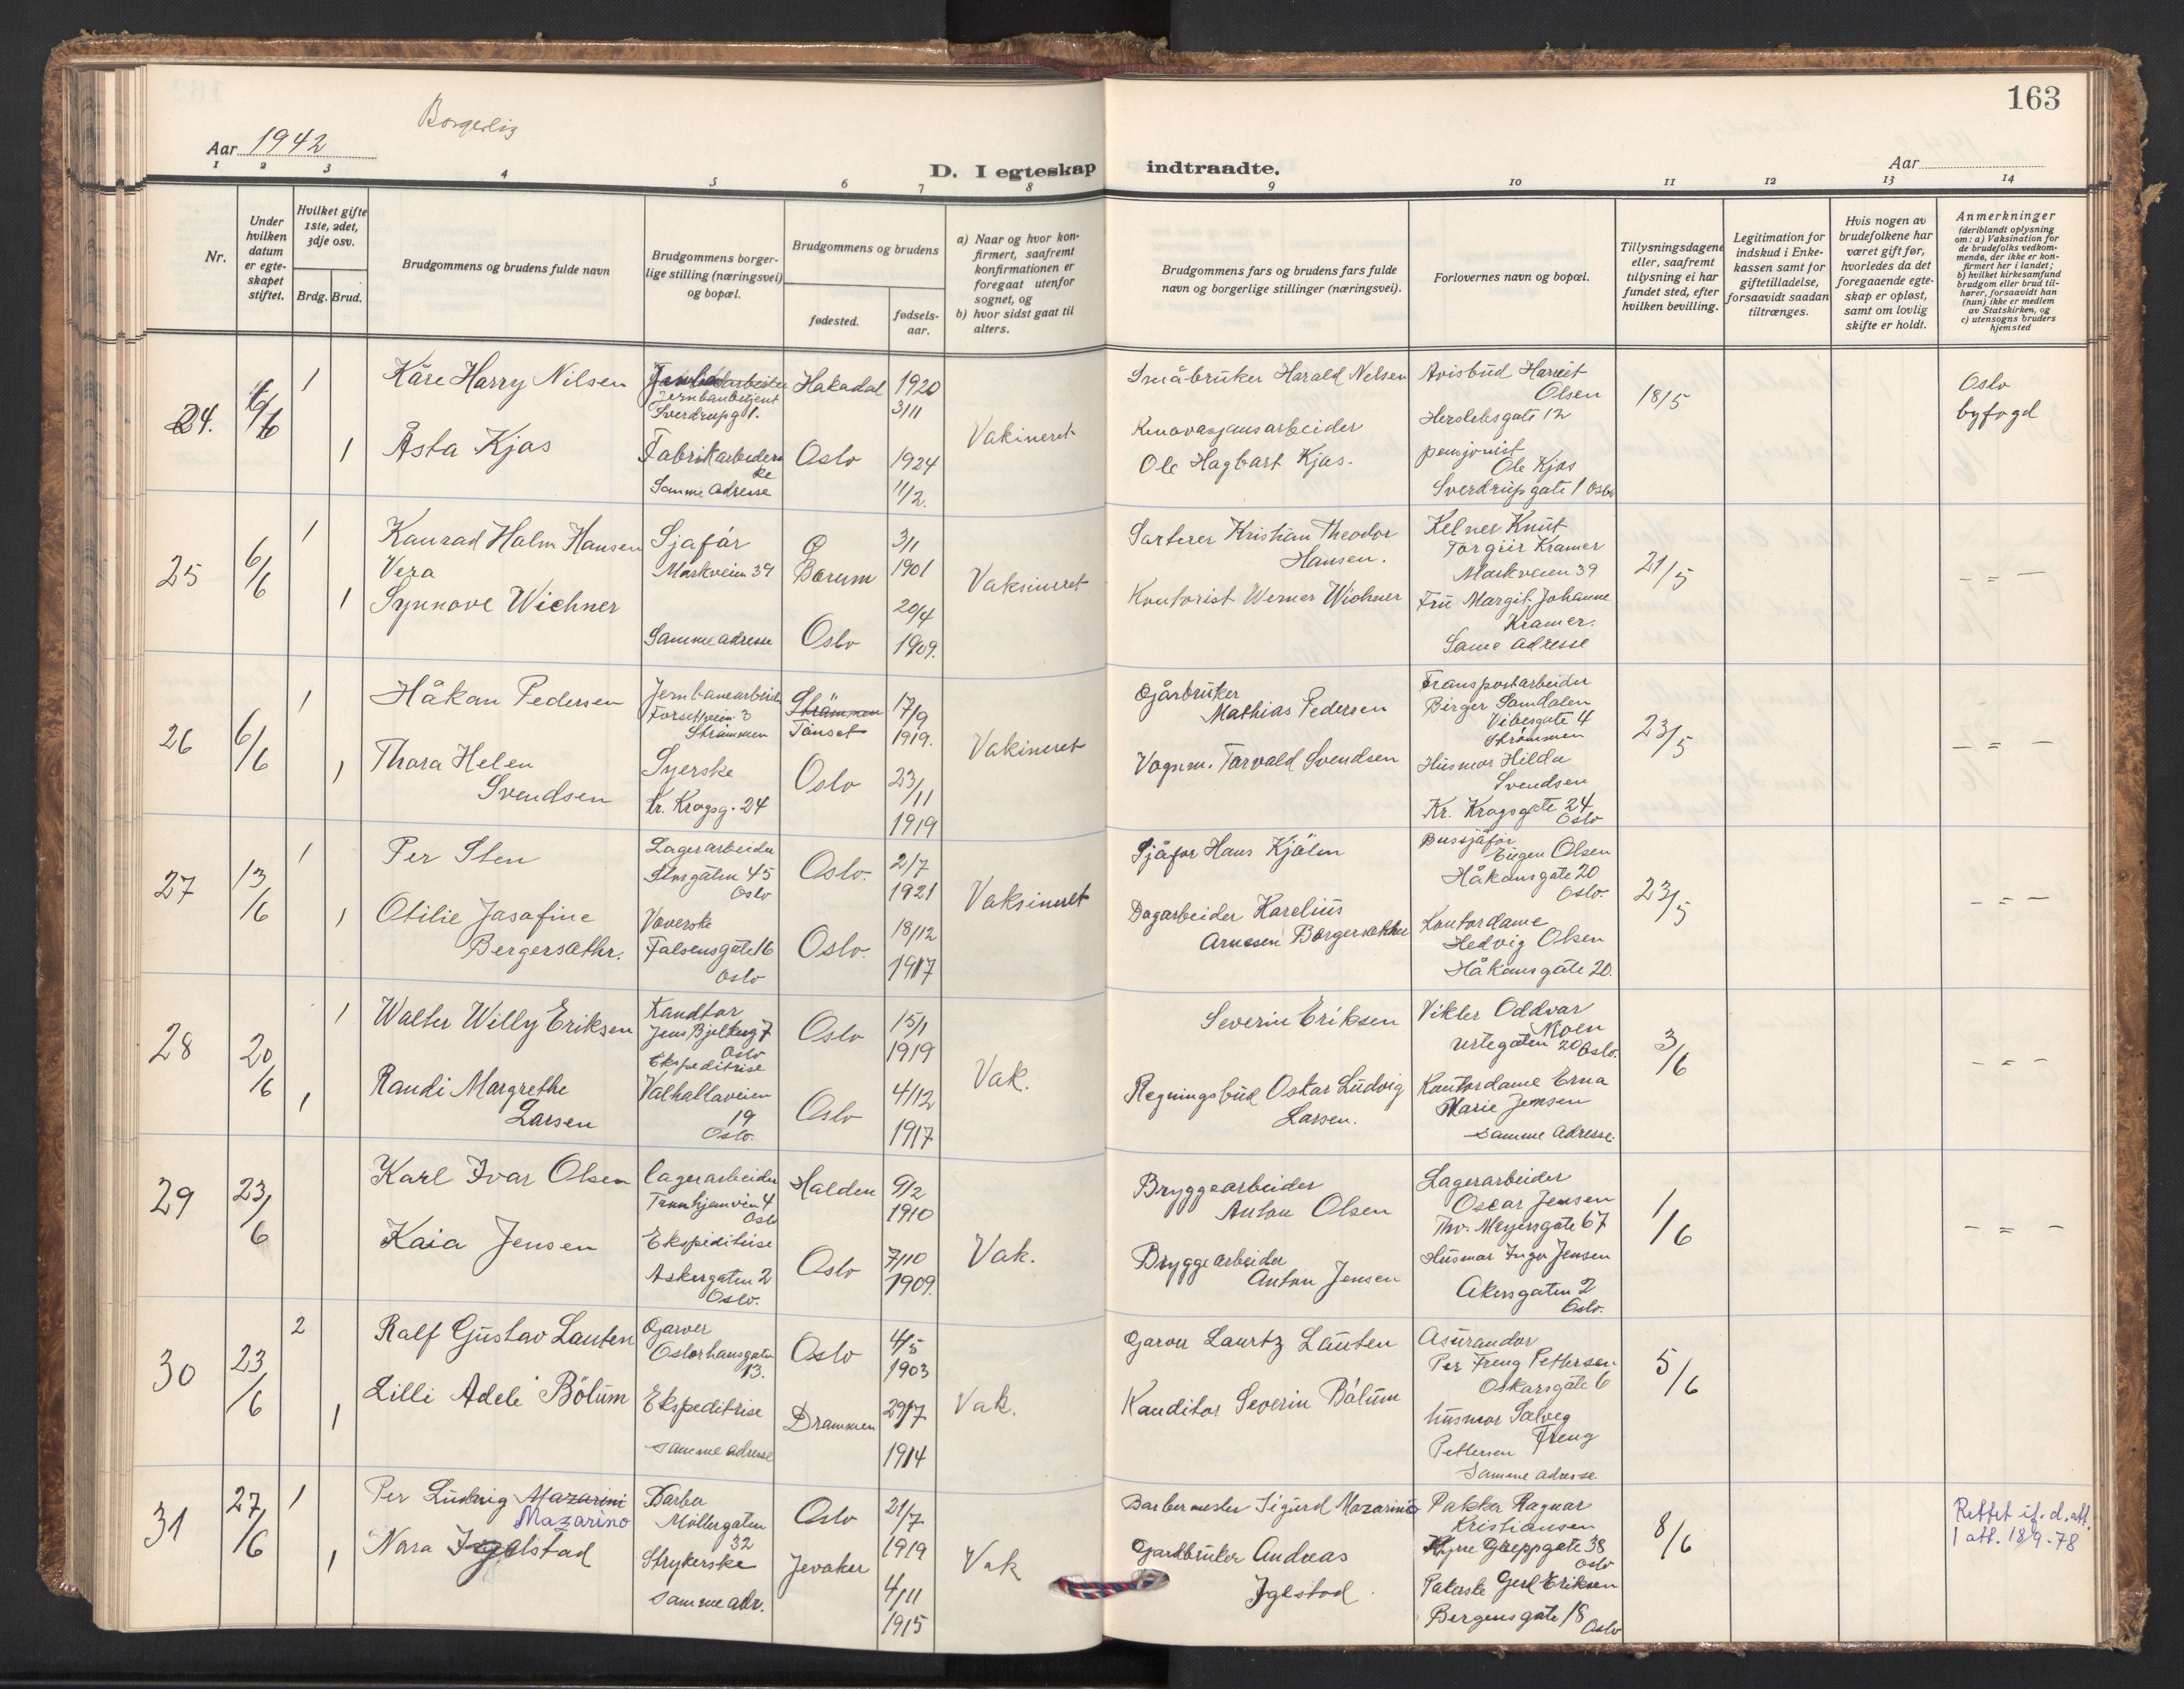 163
Borgerlig
Aar 1942
Aar
D. I egteskap indtraadte.
1 2 3 4 5 6 7 8 9 10 11 12 13 14
Nr.
Under hvilken datum er egteskapet stiftet.
Hvilket gifte 1ste, 2det, 3dje osv.
Brdg. Brud.
Brudgommens og brudens fulde navn
Brudgommens borgerlige stilling (næringsvei) og bopæl.
Brudgommens og brudens
fødested.
fødselsaar.
a) Naar og hvor konfirmert, saafremt konfirmationen er foregaat utenfor sognet, og
b) hvor sidst gaat til alters.
Brudgommens fars og brudens fars fulde navn og borgerlige stillinger (næringsvei).
Forlovernes navn og bopæl.
Tillysningsdagene eller, saafremt tillysning ei har fundet sted, efter hvilken bevilling.
Legitimation for indskud i Enkekassen samt for giftetilladelse, forsaavidt saadan tiltrænges.
Hvis nogen av brudefolkene har været gift før, hvorledes da det foregaaende egteskap er opløst, samt om lovlig skifte er holdt.
Anmerkninger
(deriblandt oplysning om: a) Vaksination for de brudefolks vedkommende, der ikke er konfirmert her i landet;
b) hvilket kirkesamfund brudgom eller brud tilhører, forsaavidt han (hun) ikke er medlem av Statskirken, og
c) utensogns bruders hjemsted
24.
6/6
1
Kåre Harry Nilsen
Jernbanbetjent
Sverdrupg 1.
Hakadal
1920
3/11
Vakineret
Småbruker Harald Nelsen
Avisbud Harriet
Olsen
Herslebsgate 12
18/5
Oslo
byfogd
1
Åsta Kjos
Fabrikarbeiderske
Samme Adresse
Oslo
1924
11/2.
Renovasjonsarbeider
Ole Hagbart Kjos.
pensjonist
Ole Kjos
Sverdrupgate 1 Oslo
25
6/6
1
Konrad Holm Hansen
Sjafór
Markveien 39
Ø
Bærum
3/1
1901
Vaksineret
Sorterer Kristian Theodor
Hansen.
Kelner Knut
Torgeir Kramer
Markveien 39
21/5
- = -
1
Vera
Synnøve Wichner
Samme adresse
Oslo
20/4
1909.
Kontorist Werner Wichner
Fru Margit Johanne
Kramer.
Same adresse
26
6/6
1
Håkan Pedersen
Jernbanearbeider
Forsetveien 3
Strømmen
Strömmen
Tönset
17/9
1919.
Vakineret
Gjårbruker
Mathias Pedersen
Transportarbeider
Birger Sandalen
Vibesgate 4
Strömmen
23/5
- = -
1
Thora Helen
Svendsen
Syerske
Kr. Krogsg. 24
Oslo
23/11
1919
Vognm. Torvald Svendsen
Husmor Hilda
Svendsen
Kr. Krogsgate 24
Oslo
27
13/6
1
Per Sten
Lagerarbeider
Storgaten 45
Oslo
Oslo.
2/7
1921
Vaksineret
Sjåfor Hans Kjölen
Bussjåfor
Eugen Olsen
Håkonsgate 20
Oslo.
23/5
- = -
1
Otilie Josafine
Bergersæthr.
Væverske
Falsensgate 16
Oslo
Oslo.
18/12
1917
Dagarbeider Karelius
Arnesen Borgersækhe
Kontordame
Hedvig Olsen
Håkonsgate 20.
28
20/6
1
Walter Willy Eriksen
Kanditor
Jens Bjelkesg 7
Oslo
Oslo
15/1
1919
Vak.
Severin Eriksen
Vikler Oddvar
Moen
Urtegaten 20 Oslo.
3/6
- = -
1
Randi Margrethe
Larsen
Ekspeditrise
Valhallaveien
19
Oslo.
Oslo
4/12
1917
Regningsbud Oskar Ludvig
Larsen.
Kontordame Erna
Marie Jensen
Samme Adresse.
29
23/6
Karl Ivar Olsen
Lagerarbeider
Tronhjemvn 4
Oslo
Halden
9/2
1910
Vak.
Bryggearbeider
Anton Olsen
Lagerarbeider
Oscar Jensen
Thv. Meyersgate 67
1/6
- = -
Kaia Jensen
Ekspeditrise
Askergaten 2
Oslo.
Oslo
7/10
1909.
Bryggearbeider
Anton Jensen
Husmor Inga Jensen
Akersgaten 2
Oslo.
30
23/6
2
Ralf Gustav Lauten
Garver
Osterhausgaten
13.
Oslo
4/5
1903
Vak.
Garver Laurtz Lauten
Asurandor
Per Freng Pettersen
Oskarsgate 6
5/6
1
Lilli Adele Bölum
Ekspeditrise
Samme adresse
Drammen
29/7
1914
Kanditor Severin Bölum
husmor Solveg
Pettersen Freng
Samme adresse
31
27/6
1
Per Ludvig Mazarini
Mazarino
Barber
Möllergaten
32
Oslo
21/7
1919
Vak
Barbermester Sigurd Mazarino
Pakker Ragnar
Kristiansen
Kyrre Greppgate 38
Oslo
8/6
Rettet if. d. att.
1 att. 18/9-78
1
Nora Igelstad
Strykerske
samme adr.
Jevaker
4/11
1915
Gardbruker Andreas
Igelstad.
Pakerske Gerd Eriksen
Bergensgate 18
Oslo